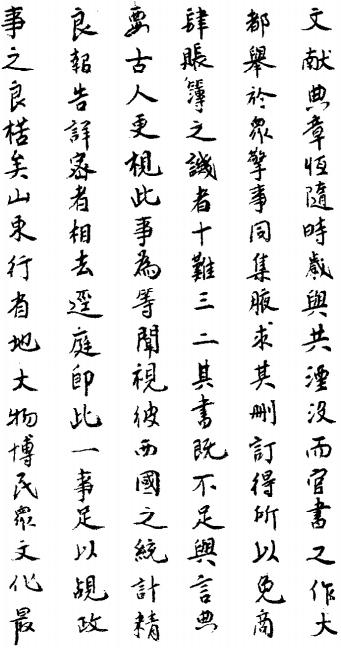 文献典章恆隨時歲與共湮沒而官書之作大
都舉於眾擎事同集腋求其刪訂得所以免商
肆賬簿之譏者十難三二其書既不足與言典
要古人更視此事為等閒視彼西國之統計精
良報告詳密者相去逕庭即此一事足以覘政
事之良楛矣山東行省地大物博民眾文化最